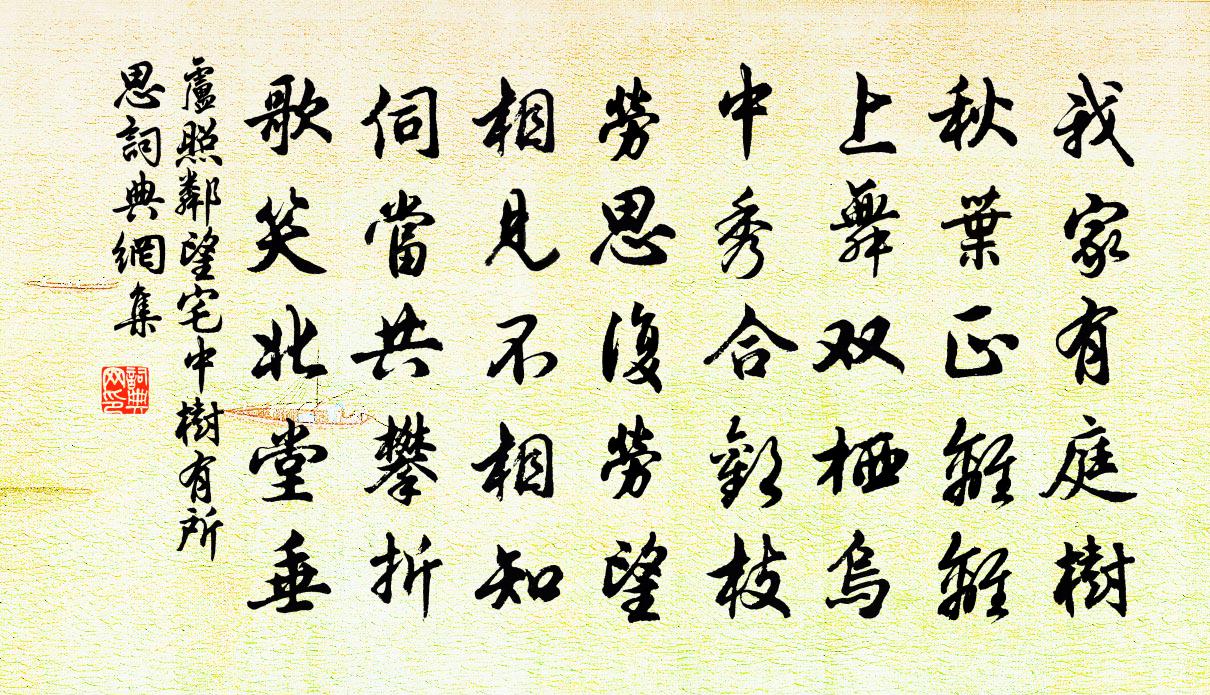 我家有庭樹
秋葉正離離
上舞双栖鳥
中秀合歡枝
勞思復勞望
相見不相知
伺當共攀折
歌笑此堂垂
盧照鄰望宅中樹有所
思詞典網集
詞典
网印